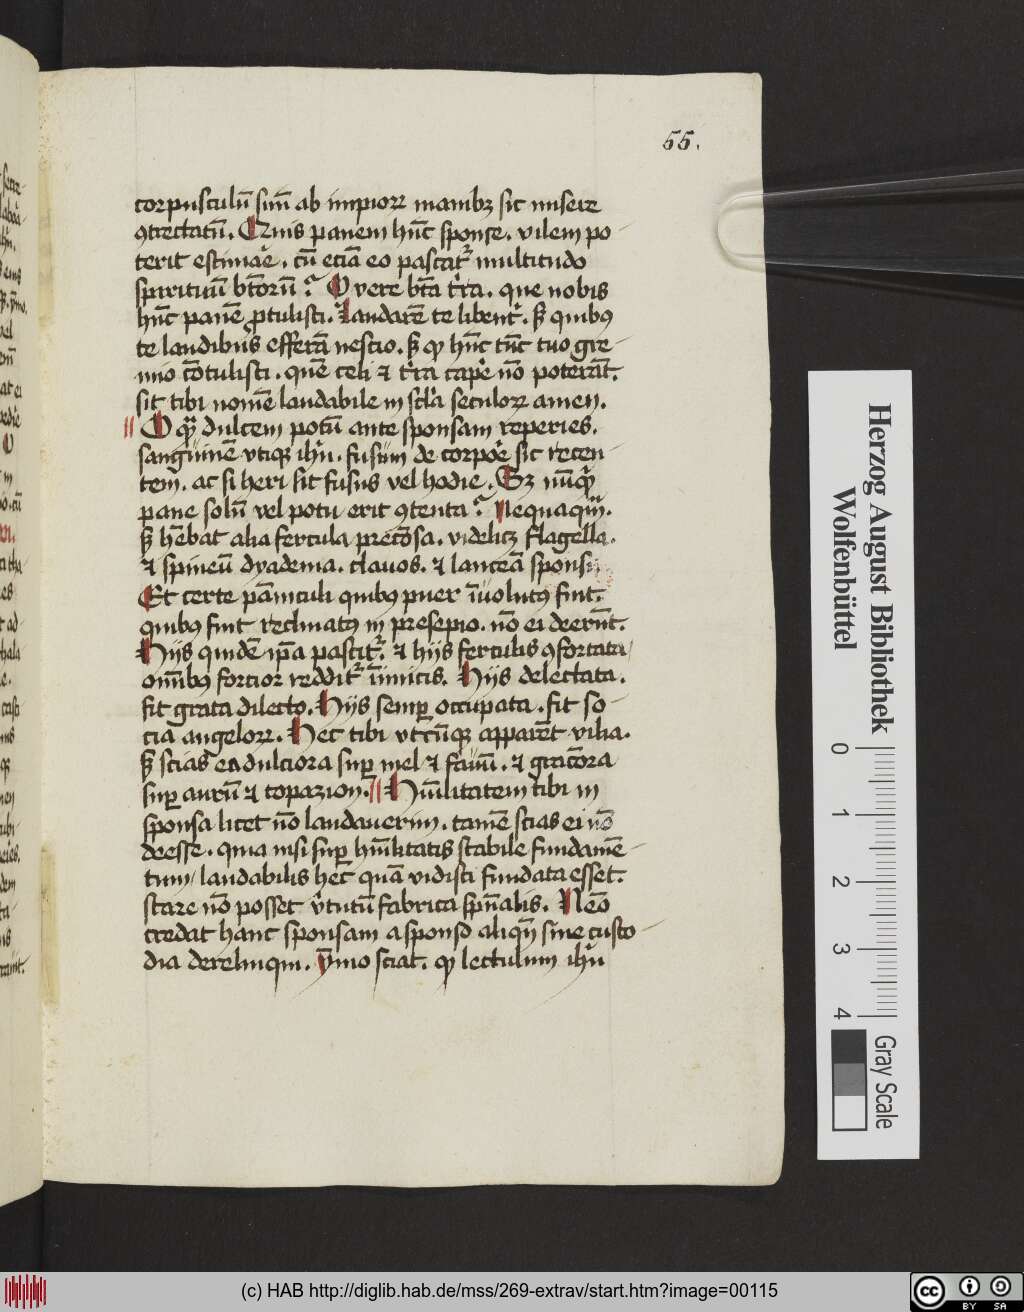 55.
corpusculū suū ab impioꝝ manibꝫ sic misere
ꝯtrectatū. Quis panem hūc sponse. vilem po-
terit estimāe. cū eciā eo pascat᷑ multitudo
spirituū btōrū? O vere btā tr̄ra. que nobis
hūc panē ꝓtulisti. Laudarē te libent᷑. sꝫ quibus
te laudibus efferā nescio. sꝫ ꝙ hūc tūc tuo gre-
mio cōtulisti. quē celi ⁊ tr̄ra cape᷑ nō poterāt.
sit tibi nomē laudabile in scl̄a seculoꝝ amen.
O qꝫ dulcem potū ante sponsam reperies.
sanguinē vtiqꝫ ih̄u. fusum de corpoē sic recen-
tem. ac si heri sit fusus vel hodie. Sꝫ nūqͥd
pane solū vel potu erit ꝯtenta? Nequaqͣm.
sꝫ hēbat alia fercula preciōsa. videlicꝫ flagella.
⁊ spineū dyadema. clauos. ⁊ lanceā
Et certe pāniculi quibus puer īuolutus fuit.
quibus fuit reclinatus in presepio. nō ei deerūt.
Hijs quidē ip̄a pascit᷑. ⁊ hijs ferculis ꝯfortata
omībus forcior reddit᷑ inimicis. Hijs delectata.
fit grata dilecto. Hijs semꝑ occupata. fit so-
cia angeloꝝ. Hec tibi vtcūqꝫ apparēt vilia.
sꝫ scias ea dulciora suꝑ mel ⁊ fauū. ⁊ graciōra
suꝑ aurū ⁊ topazion. Hūilitatem tibi in
sponsa licet nō laudauerim. tamē scias ei nō
deesse. quia nisi suꝑ hūilitatis stabile fundamē-
tum laudabilis hec quā vidisti fundata esset.
stare nō posset v᷑tutū fabrica spūalis. Neō
credat hanc sponsam a sponso aliqn̄ sine custo-
dia derelinqui. ymo sciat. ꝙ lectulum ih̄u
Herzog August Bibliothek
Wolfenbüttel
0 1 2 3 4
Gray Scale
(c) HAB http://diglib.hab.de/mss/269-extrav/start.htm?image=00115
cc BY SA